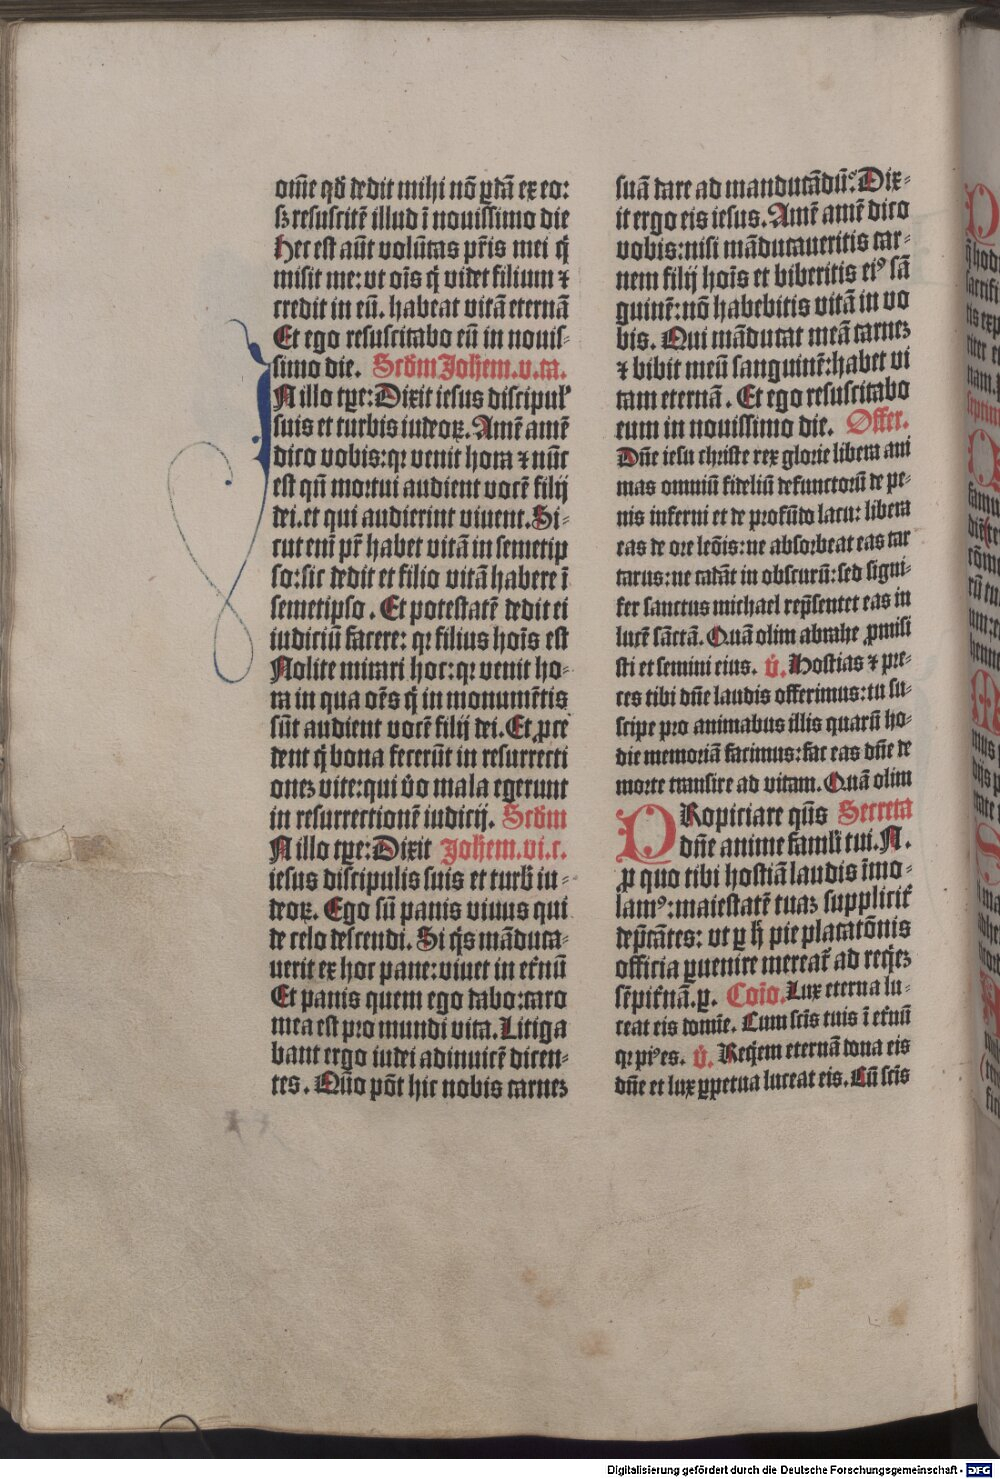 om̄e qđ dedit mihi nō ꝑdā ex eo:
sꝫ resuscitē illud ī nouissimo die
Hec est aūt volūtas pr̄is mei q̄
misit me: vt oīs q̄ videt filium ⁊
credit in eū. habeat vitā eternā
Et ego resuscitabo eū in nouis-
simo die. Scdm̄ Joh̄em. v. ca.
IN illo tꝑe: Dixit iesus discipul'
suis et turbis iudeoꝝ. Amē amē
dico vobis: qꝛ venit hora ⁊ nūc
est qn̄ mortui audient vocē filij
dei. et qui audierint viuent. Si-
cut enī pr̄ habet vitā in semetip
so: sic dedit et filio vitā habere ī
semetipso. Et potestatē dedit ei
iudiciū facere: qꝛ filius hoīs est
Nolite mirari hoc: qꝛ venit ho-
ra in qua oēs q̄ in monumētis
sūt audient vocē filij dei. Et ꝓce
dent q̄ bona fecerūt in resurrecti
onez vite: qui v̄o mala egerunt
in resurrectionē iudicij. Scdm̄
IN illo tꝑe: Dixit Joh̄em. vi. c.
iesus discipulis suis et turb̄ iu-
deoꝝ. Ego sū panis viuus qui
de celo descendi. Si q̄s māduca-
uerit ex hoc pane: viuet in et̄nū
Et panis quem ego dabo: caro
mea est pro mundi vita. Litiga
bant ergo iudei adinuicē dicen-
tes. Quō pōt hic nobis carnez
suā dare ad manducādū? Dix-
it ergo eis iesus. Amē amē dico
vobis: nisi māducaueritis car-
nem filij hoīs et biberitis eiꝰ sā
guinē: nō habebitis vitā in vo
bis. Qui māducat meā carnez
⁊ bibit meū sanguinē: habet vi
tam eternā. Et ego resuscitabo
eum in nouissimo die. Offer.
Dn̄e iesu christe rex glorie libera ani
mas omniū fideliū defunctorū de pe-
nis inferni et de profūdo lacu: libera
eas de ore leōis: ne absorbeat eas tar
tarus: ne cadāt in obscurū: sed signi-
fer sanctus michael rep̄sentet eas in
lucē sāctā. Quā olim abrahe ꝓmisi
sti et semini eius. v̄. Hostias ⁊ pre-
ces tibi dn̄e laudis offerimus: tu su-
scipe pro animabus illis quarū ho-
die memoriā facimus: fac eas dn̄e de
morte transire ad vitam. Quā olim
PRopiciare qn̄s Secreta
dn̄e anime famł'i tui. N.
ꝓ quo tibi hostiā laudis īmo-
lamꝰ: maiestatē tuaz supplicit̄
dep̄cātes: vt ꝑ h̄ pie placatōnis
officia ꝑuenire mereat̄ ad req̄ez
sēpit̄nā. ꝑ. Coīo. Lux eterna lu-
ceat eis domīe. Cum sc̄is tuis ī et̄nū
qꝛ piꝰ es. v̄. Req̄em eternā dona eis
dn̄e et lux ꝑpetua luceat eis. Cū sc̄is
Digitalisierung gefördert durch die Deutsche Forschungsgemeinschaft - DFG